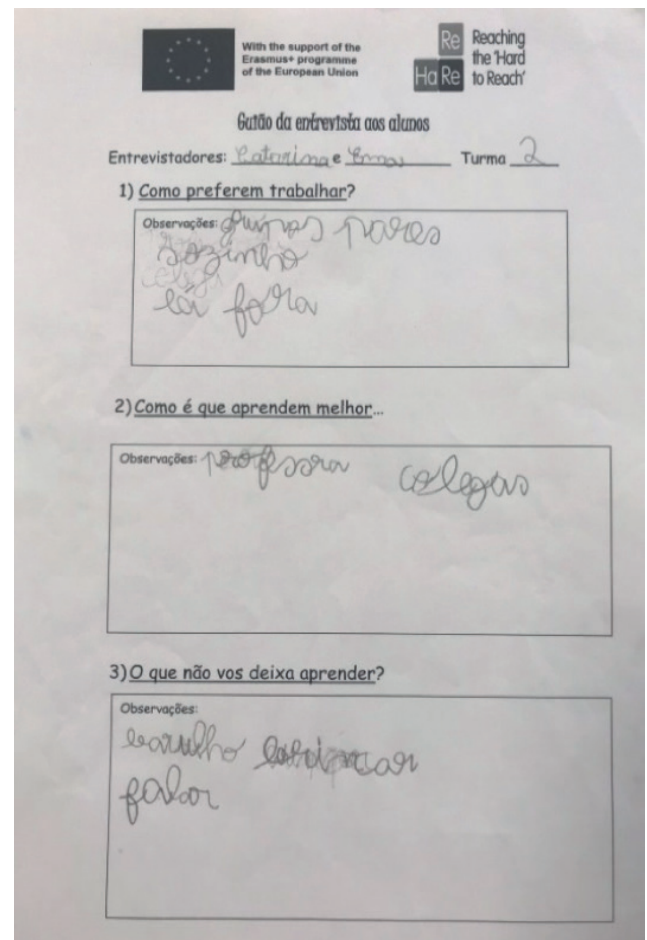 With the support of the
Erasmus+ programme
of the European Union
Re Reaching
the 'Hard
HaRe to Reach'
Guião da entrevista aos alunos
Entrevistadores: Catarina e Ema Turma 2
1) Como preferem trabalhar?
Observações: grupos pares
sozinho
lá fora
2) Como é que aprendem melhor...
Observações: professora colegas
3) O que não vos deixa aprender?
Observações:
barulho brincar
falar